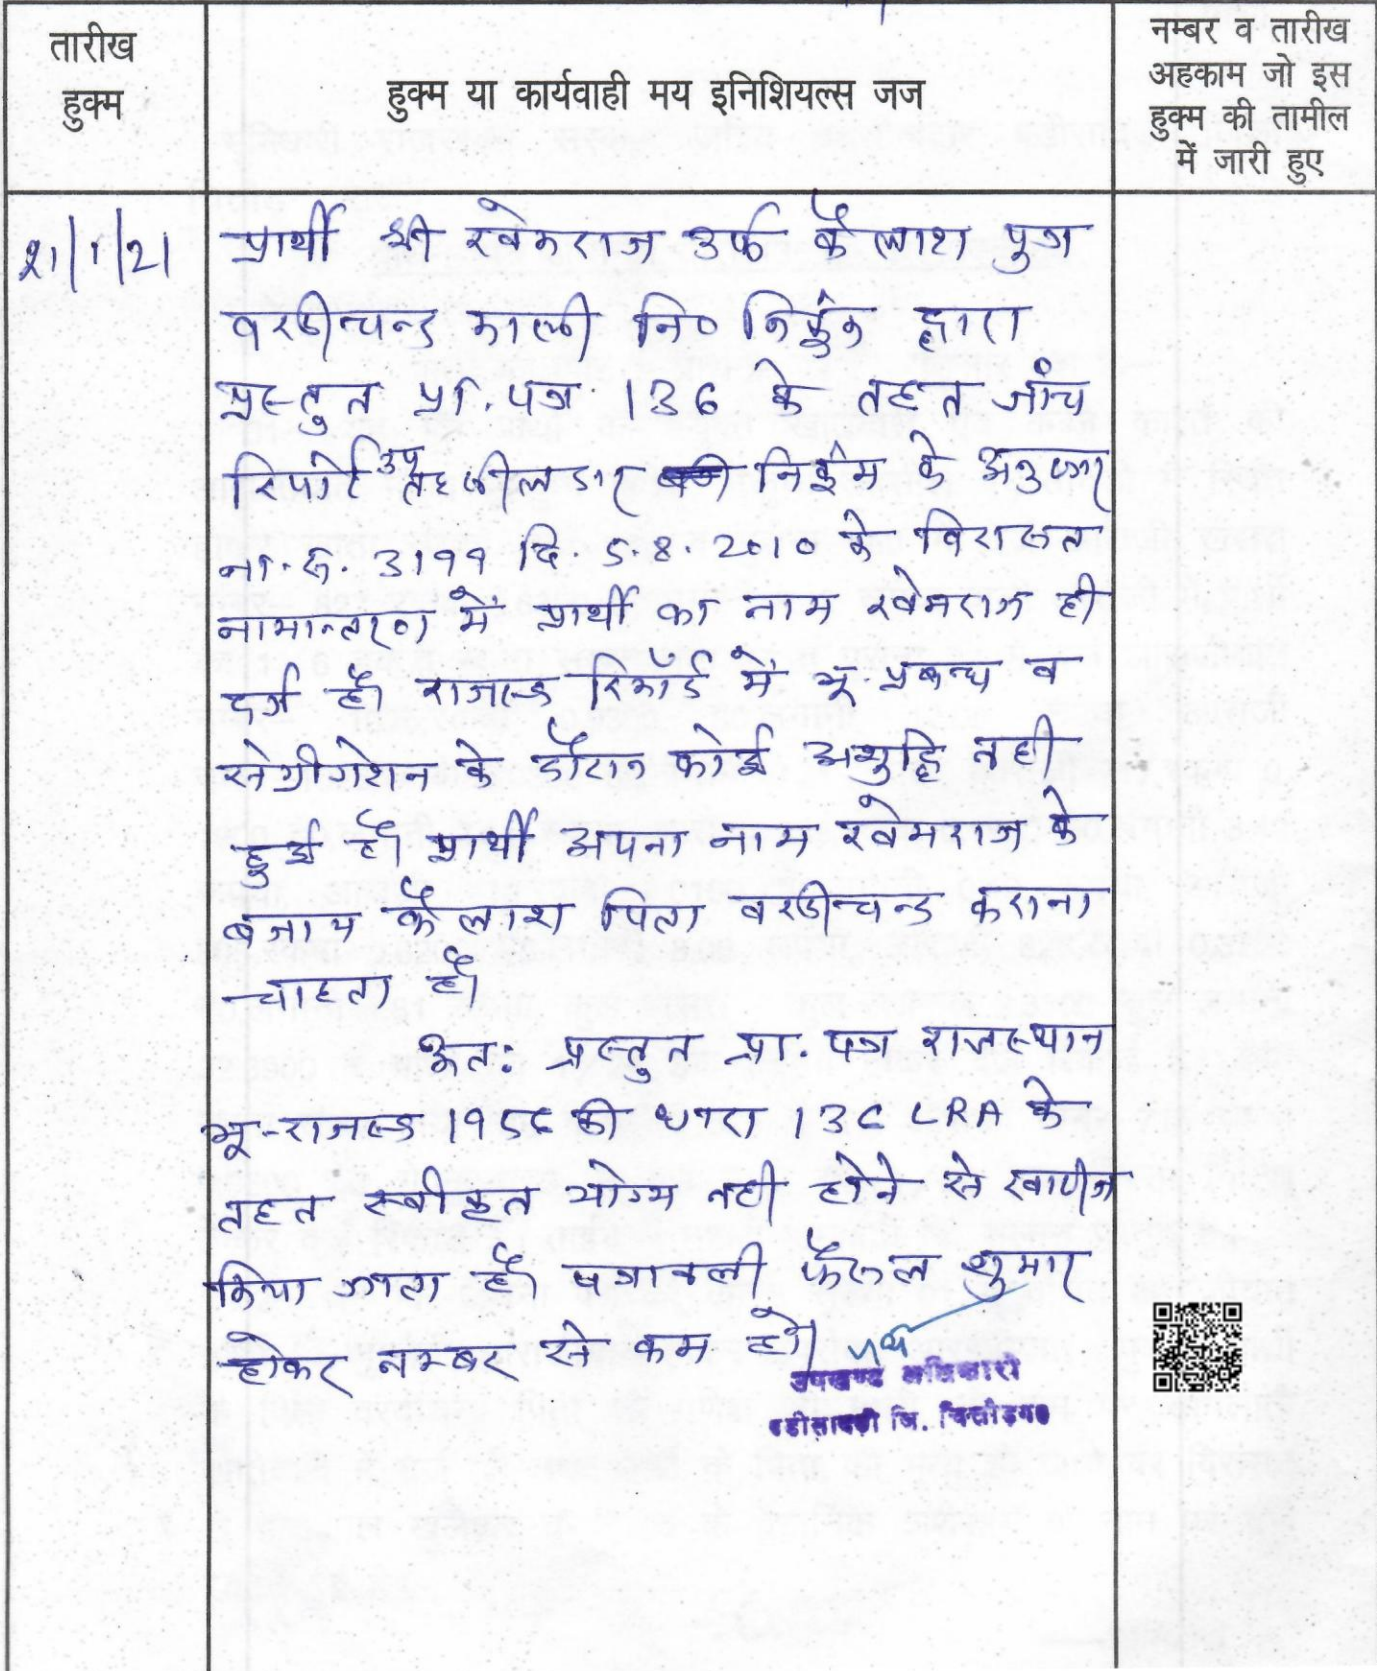 तारीख
हुक्म
हुक्म या कार्यवाही मय इनिशियल्स जज
नम्बर व तारीख
अहकाम जो इस
हुक्म की तामील
में जारी हुए
21/1/21
प्रार्थी श्री खेमराज उर्फ कैलाश पुत्र
वरदीचन्द माली नि० निकुंम द्वारा
प्रस्तुत प्रा. पत्र 136 के तहत जांच
रिपोर्ट उप तहसीलदार निकुंम के अनुसार
ना.क. 3199 दि. 5.8.2010 के विरासत
नामान्तरण में प्रार्थी का नाम खेमराज ही
दर्ज है। राजस्व रिकॉर्ड में भू-प्रबन्ध व
सेग्रीगेशन के दौरान कोई अशुद्धि नही
हुई है। प्रार्थी अपना नाम खेमराज के
बजाय कैलाश पिता वरदीचन्द कराना
चाहता है।
अतः प्रस्तुत प्रा. पत्र राजस्थान
भू-राजस्व 1956 की धारा 136 LRA के
तहत स्वीकृत योग्य नही होने से खारीज
किया जाता है। पत्रावली फैसल शुमार
होकर नम्बर से कम हो।
उपखण्ड अधिकारी
बडीसादड़ी जि. चित्तौड़गढ़